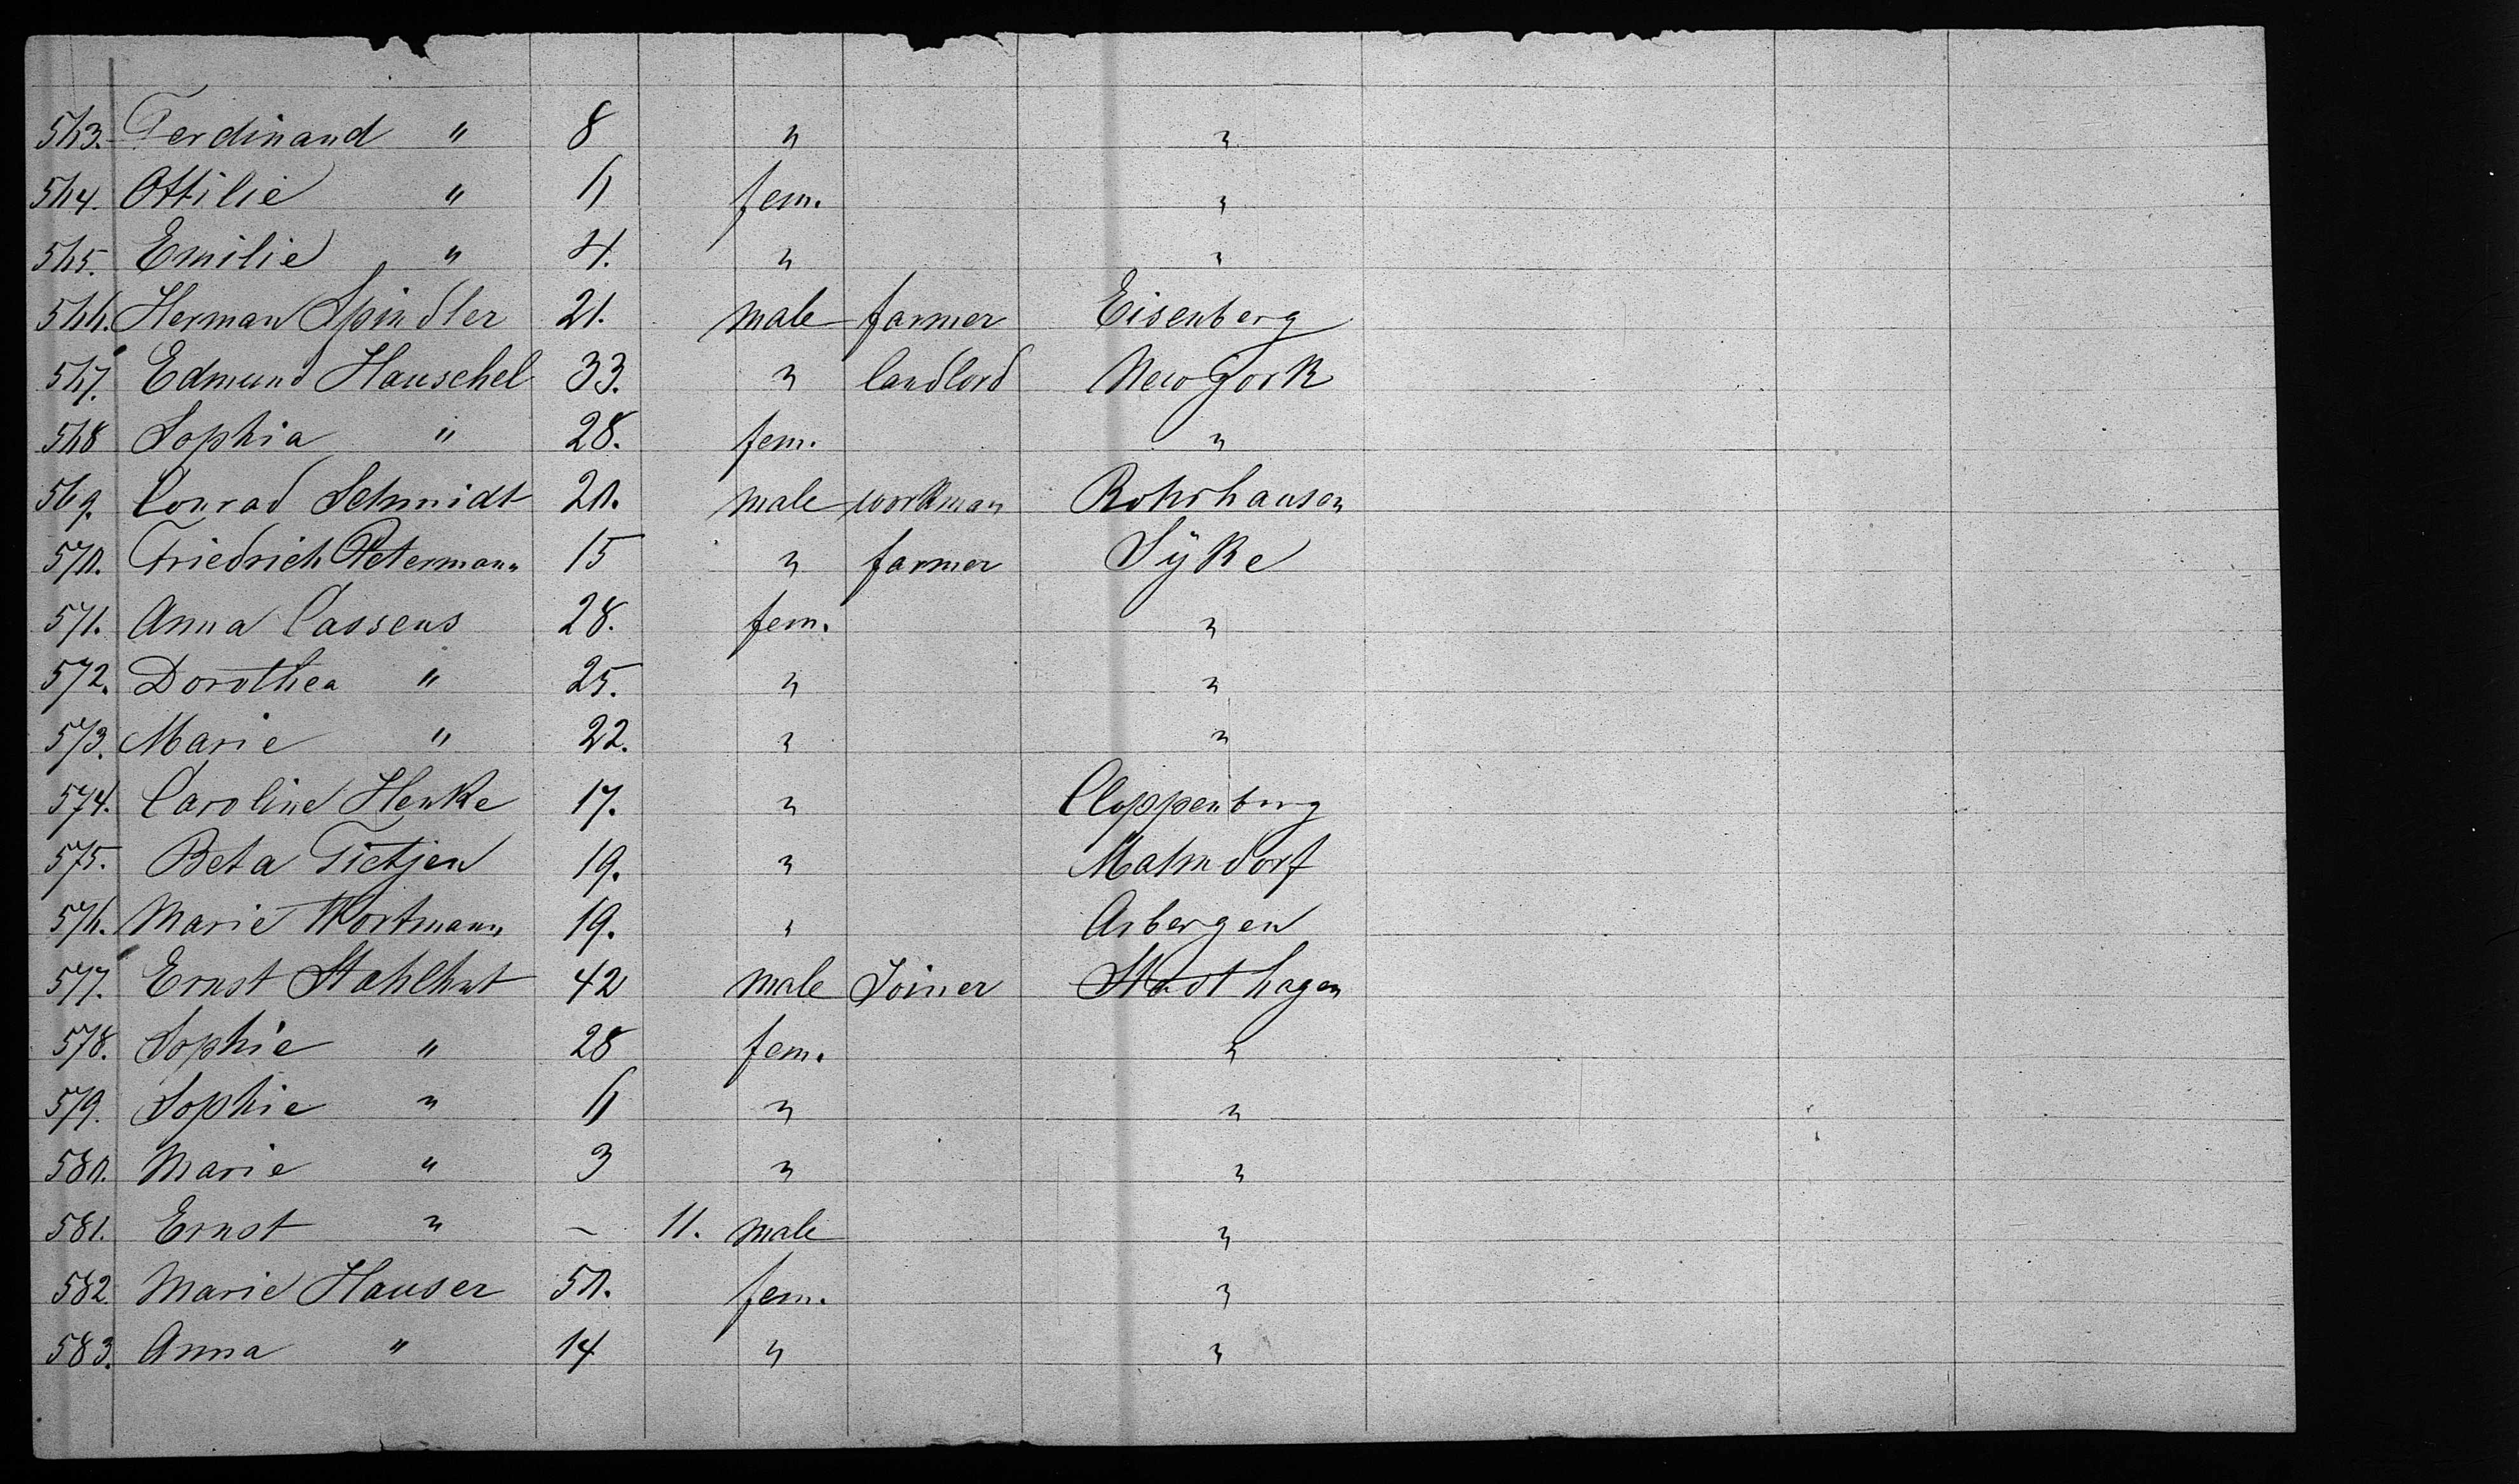 563. Ferdinand " 8 " "
564. Ottilie " 6 fem. "
565. Emilie " 4. " "
566. Herman Spindler 21. male farmer Eisenberg
567. Edmund Hauschel 33. " landlord New York
568 Sophia " 28. fem. "
569. Conrad Schmidt 20. male workman Rohrhausen
570. Friedrich Petermann 15 " farmer Syke
571. Anna Cassens 28. fem. "
572. Dorothea " 25. " "
573. Marie " 22. " "
574. Caroline Henke 17. " Cloppenburg
575. Beta Tietjen 19. " Mahndorf
576. Marie Wortmann 19. " Arbergen
577. Ernst Stahlhut 42 male Joiner Stadthagen
578. Sophie " 28 fem. "
579. Sophie " 6 " "
580. Marie " 3 " "
581. Ernst " – 11. male "
582. Marie Hauser 50. fem. "
583. Anna " 14 " "